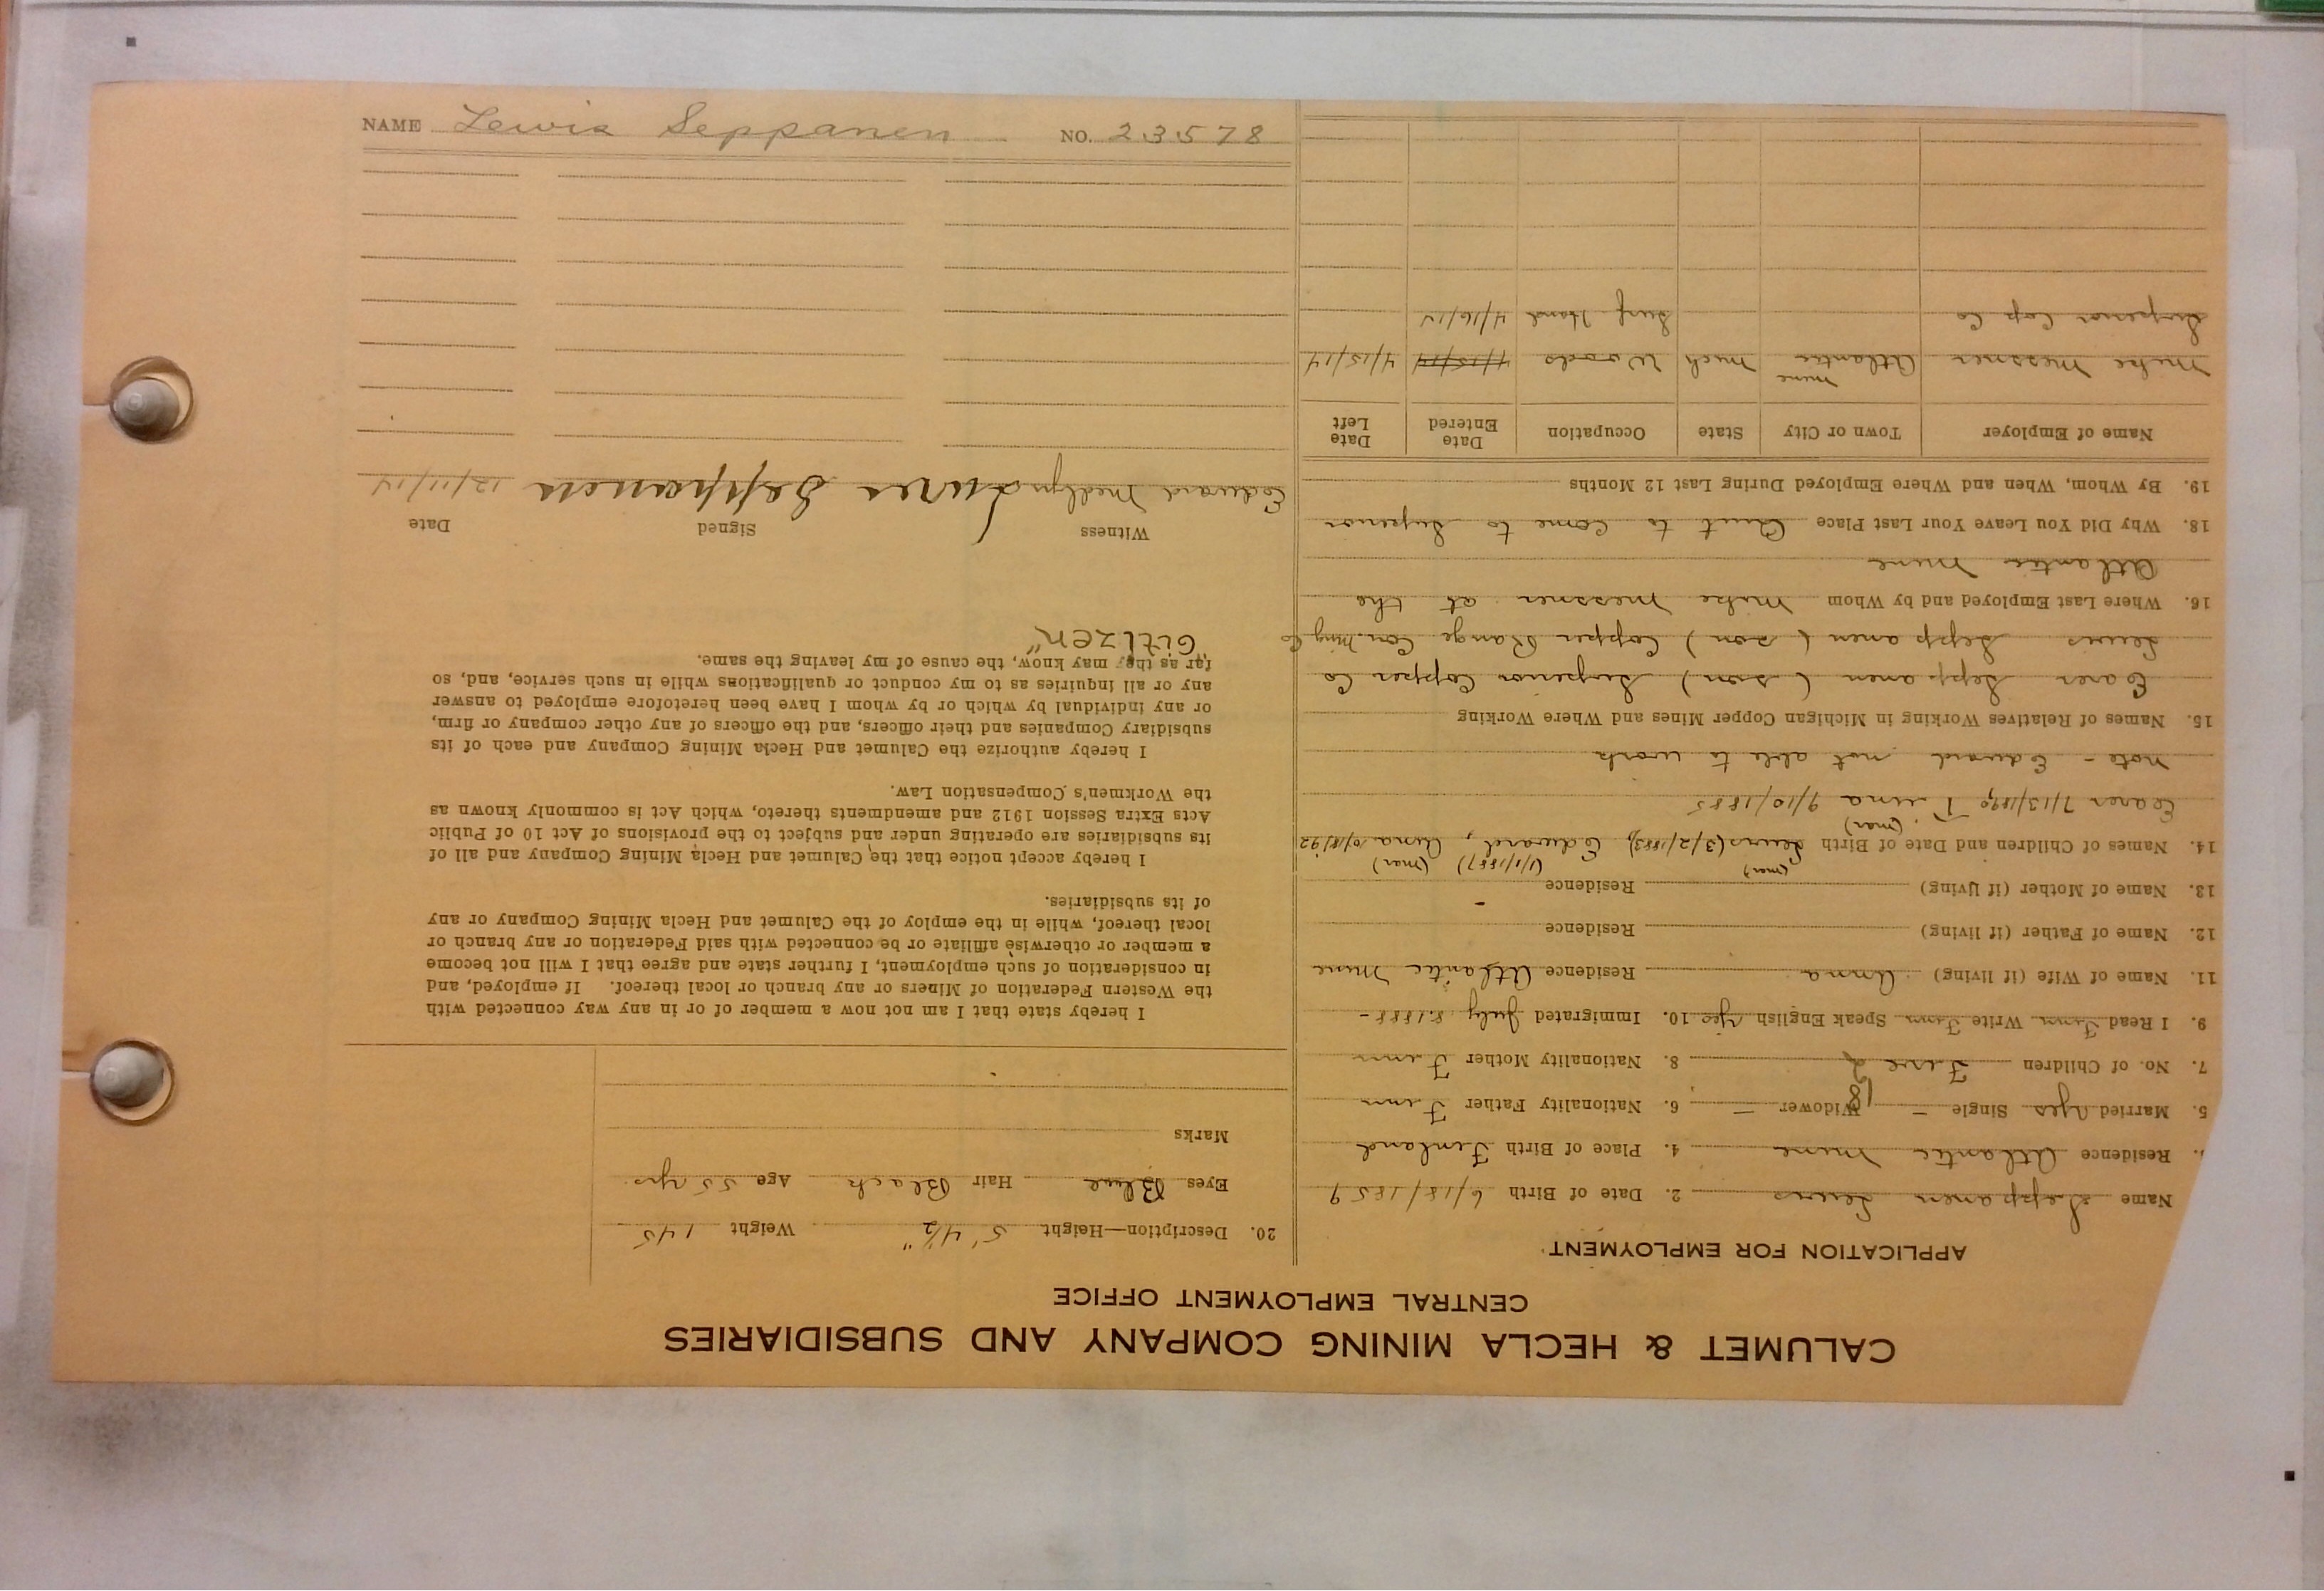 NAME Lewis Seppanen NO. 23578
CALUMET & HECLA MINING COMPANY AND SUBSIDIARIES
CENTRAL EMPLOYMENT OFFICE
APPLICATION FOR EMPLOYMENT
Name Seppanen Lewis 2. Date of Birth 6/18/1859
Residence Atlantic Mine 4. Place of Birth Finland
5. Married Yes Single – Widower – 6. Nationality Father Finn
7. No. of Children Five 8. Nationality Mother Finn
9. I Read Finn Write Finn Speak English Yes 10. Immigrated July 1888 –
11. Name of Wife (if living) Anna Residence Atlantic Mine
12. Name of Father (if living) Residence
13. Name of Mother (if living) Residence –
(mar) (1/1/1887) (mar)
14. Names of Children and Date of Birth Lewis (3/2/1883), Edward, Anna 10/8/92
(mar)
7/13/1890 9/10/1885
Note – Edward not able to work
15. Names of Relatives Working in Michigan Copper Mines and Where Working
Seppanen (son) Superior Copper Co
Lewis Seppanen (son) Copper Range Con. Ming Co
16. Where Last Employed and by Whom Mike Messner at the
Atlantic Mine
18. Why Did You Leave Your Last Place Quit to come to Superior
19. By Whom, When and Where Employed During Last 12 Months
Name of Employer Town or City State Occupation Date Entered Date Left
Mike Messner Atlantic Mine Mich Woods 4/15/14
Superior Cop Co Surf Hand 4/16/14
20. Description—Height 5' 4½" Weight 145
Eyes Blue Hair Black Age 55 yrs.
Marks
I hereby state that I am not now a member of or in any way connected with
the Western Federation of Miners or any branch or local thereof. If employed, and
in consideration of such employment, I further state and agree that I will not become
a member or otherwise affiliate or be connected with said Federation or any branch or
local thereof, while in the employ of the Calumet and Hecla Mining Company or any
of its subsidiaries.
I hereby accept notice that the Calumet and Hecla Mining Company and all of
its subsidiaries are operating under and subject to the provisions of Act 10 of Public
Acts Extra Session 1912 and amendments thereto, which Act is commonly known as
the Workmen's Compensation Law.
I hereby authorize the Calumet and Hecla Mining Company and each of its
subsidiary Companies and their officers, and the officers of any other company or firm,
or any individual by which or by whom I have been heretofore employed to answer
any or all inquiries as to my conduct or qualifications while in such service, and, so
far as they may know, the cause of my leaving the same.
"Citizen"
Witness Signed Date
Edward Medlyn Seppanen 12/11/14